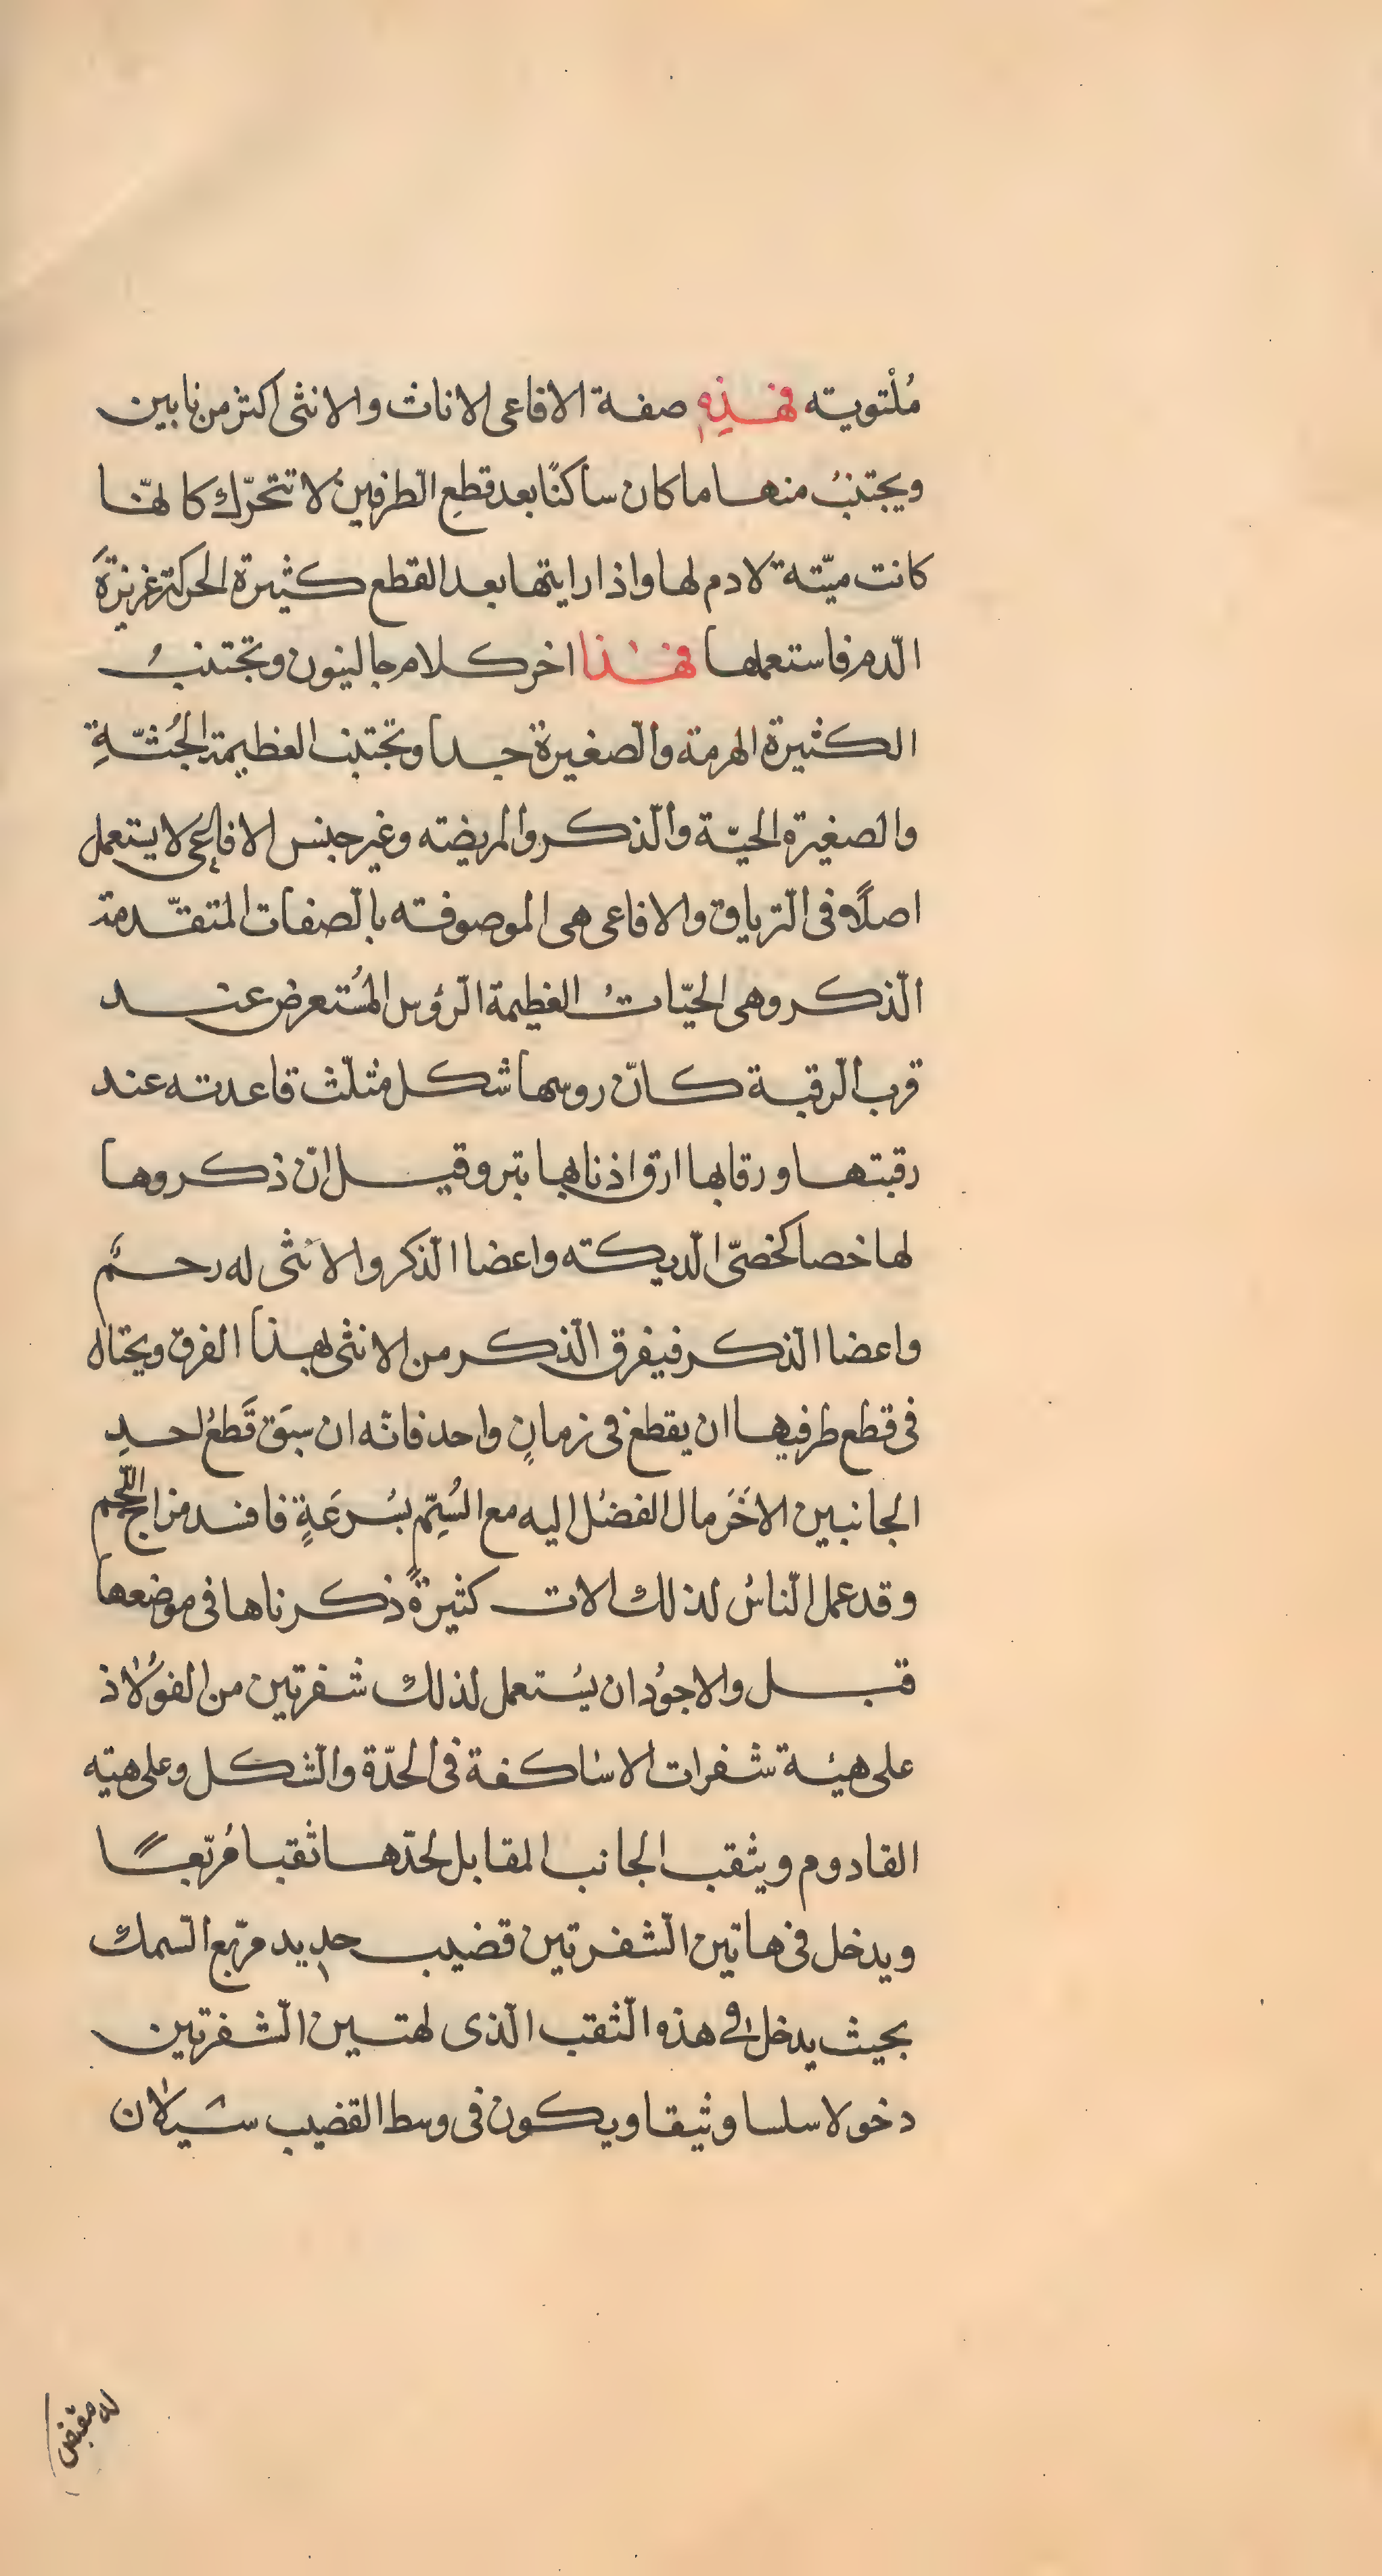 مُلْتويته فهذِه صفة الافاعى الاناث والانثى اكثر من نابين
ويجتنبُ منها ما كان ساكنًا بعد قطعِ الطرفين لا تتحرّك كانهّا
كانت ميّتة لا دم لها واذا رايتها بعد القطع كثيرة الحركة غزيرةَ
الدم فاستعملها فهذا اخر كلام جالينون وتجتنبُ
الكثيرة الهرمة والصغيرة جدا وتجتنب العظيمة الجُثّةِ
والصغيرة الحيّة والذكر والمريضته وغير جنس الافاعى لا يستعمل
اصلًا فى الترياق والافاعى هى الموصوفته بالصفات المتقدّمة
الذكر وهى الحيّاتُ العظيمة الرؤس المُستعرض عند
قرب الرقبة كانّ روسها شكل مثلّث قاعدته عند
رقبتها ورقابها ارق اذنابها بتر وقيل انّ ذكروها
لها خصا كخصىّ الديكته واعضا الذكر والانثى له رحمٌ
واعضا الذكر فيفرق الذكر من الانثى بهذا الفرق ويحتال
فى قطع طرفيها ان يقطع فى زمانٍ واحد فانّه ان سبَق قَطعُ احدِ
الجانبين الاخَر مال الفضل اليه مع السُمّ بسُرعَةٍ فافسد مزاج اللّحم
وقد عمل النّاسُ لذلك الات كثيرةً ذكرناها فى موضعها
قبل والاجوُد ان يُستعمل لذلك شفرتين من الفوُلاذ
على هيئة شفرات الاساكفة فى الحدّة والشكل وعلى هيّه
القادوم ويثقب الجانب المقابل لحدّها ثقبا مُربّعًا
ويدخل فى هاتين الشفرتين قضيب حديد مربّع السمك
بحيث يدخل فى هذه الثقب الذى لهتين الشفرتين
دخولا سلسا وثيقا ويكون فى وسط القضيب سَيلان
له مقبض